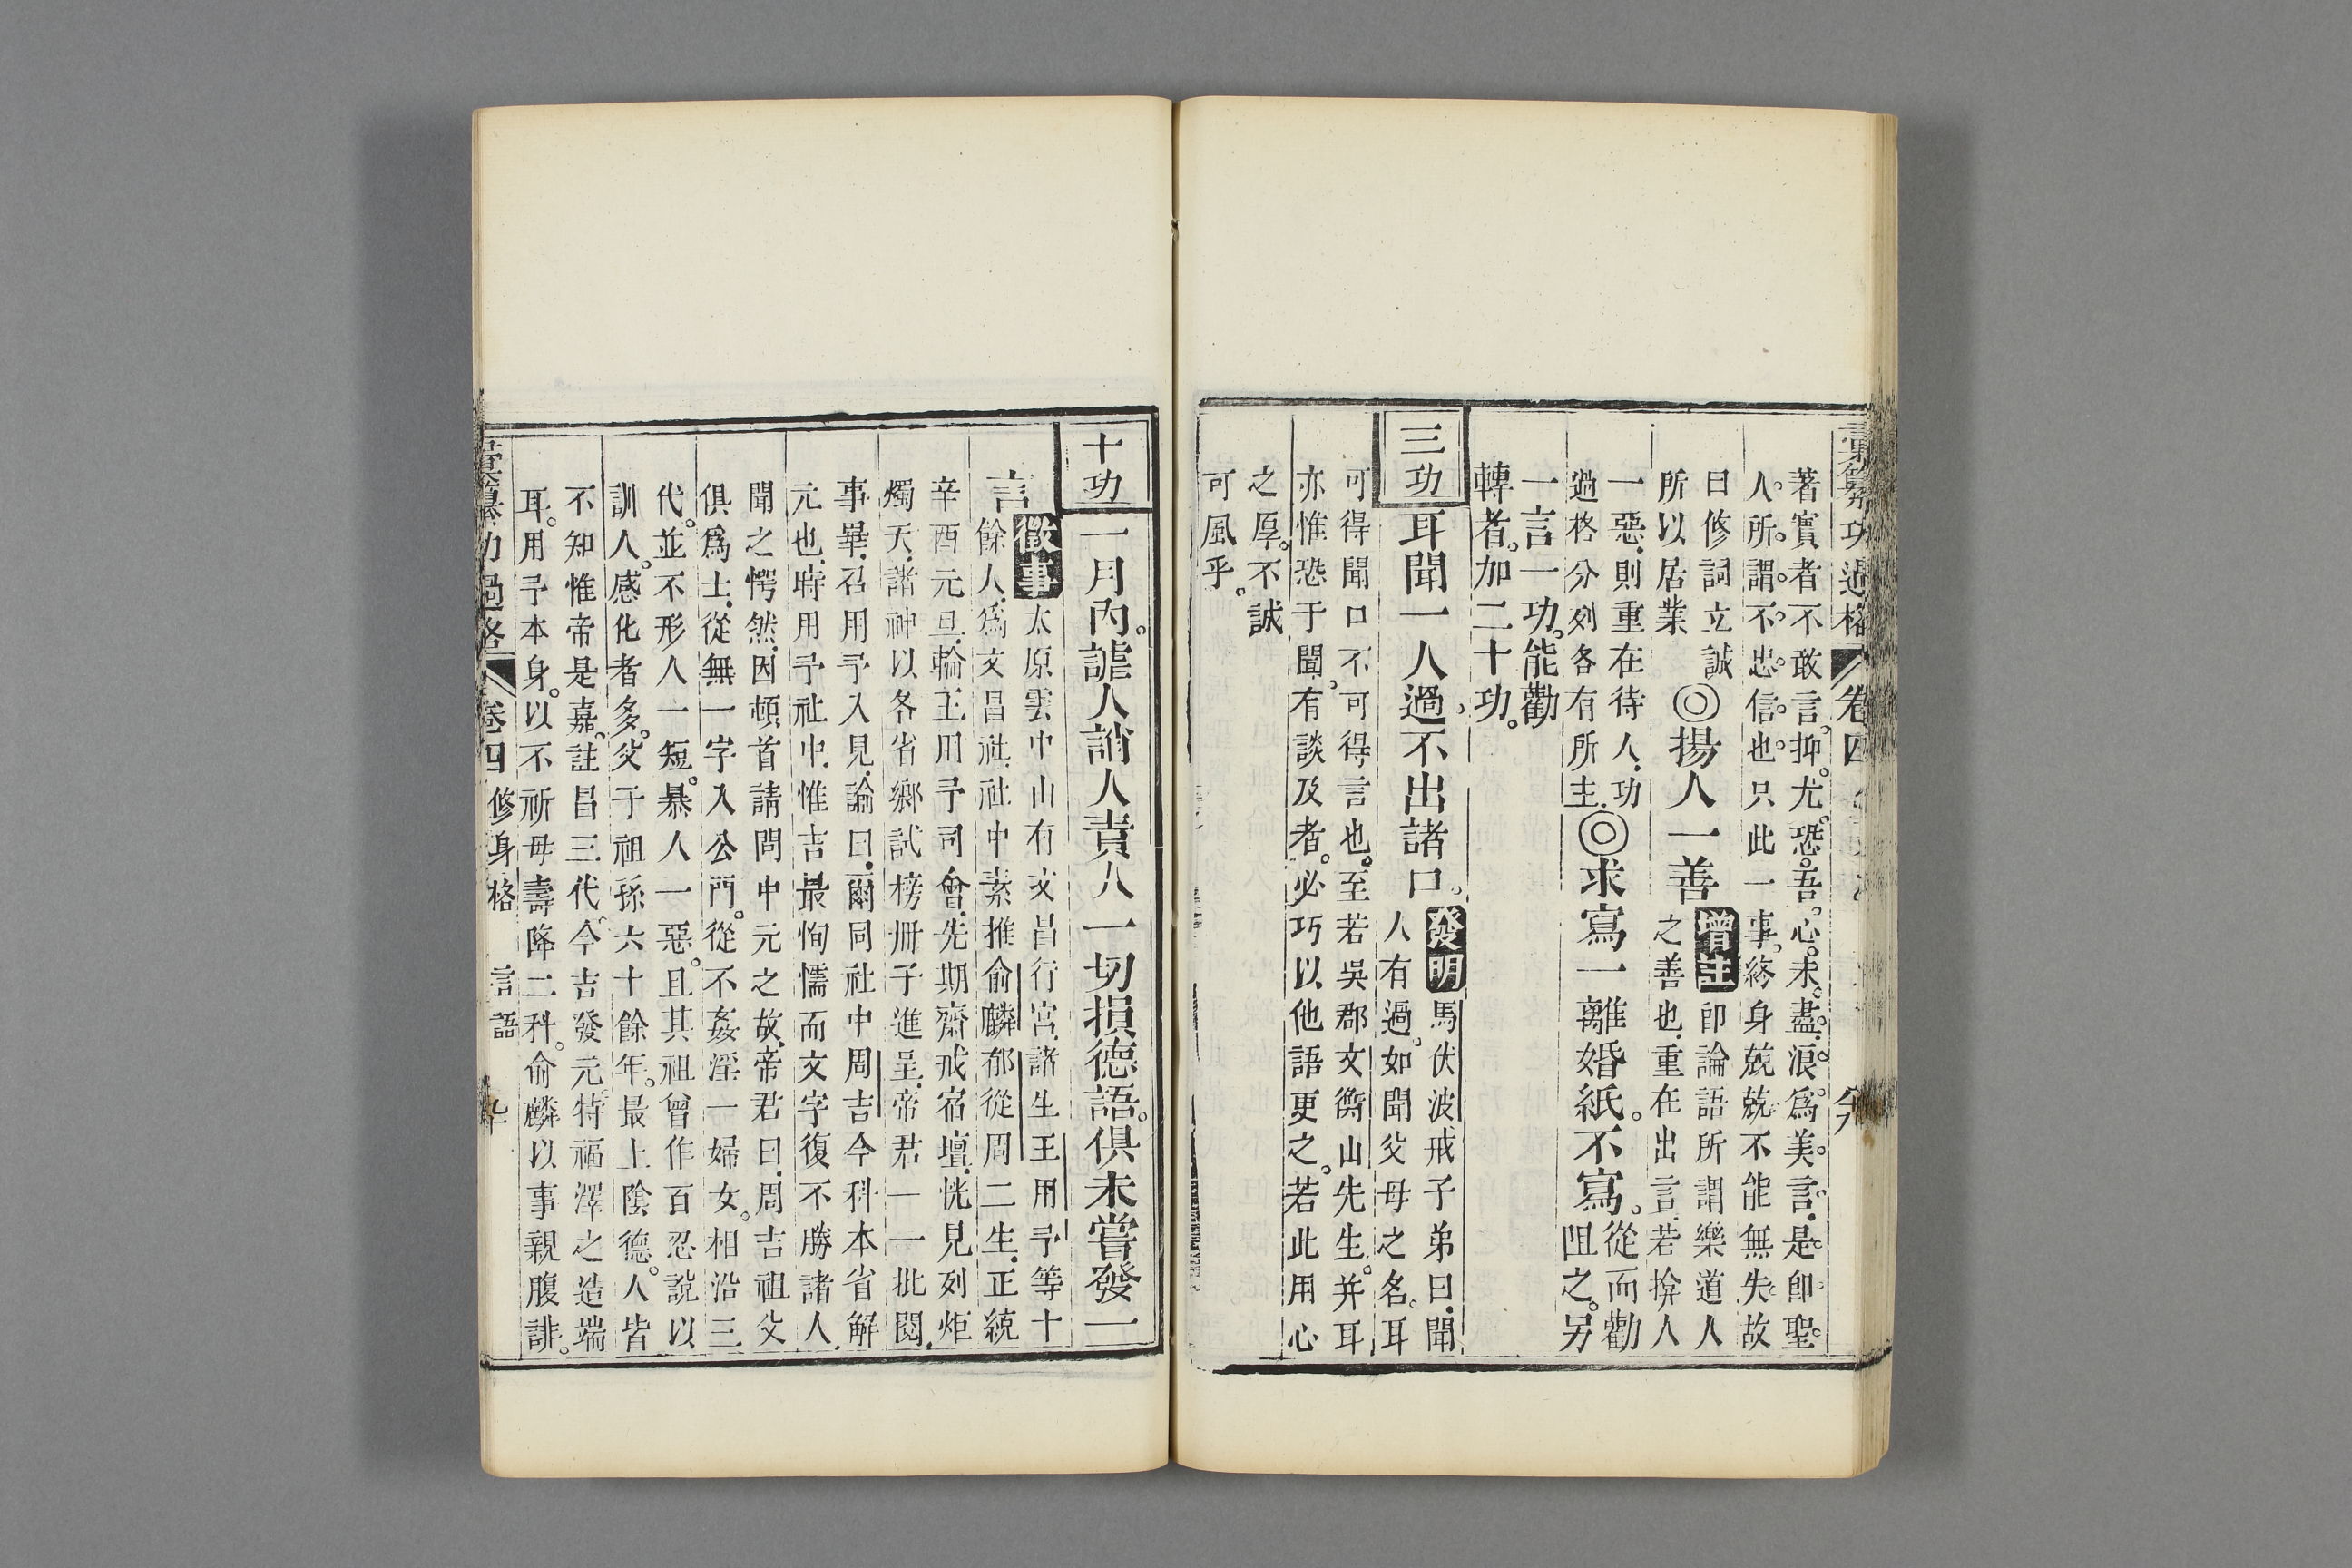 彙纂功過格 卷四
著實者不敢言。抑尤。恐。吾。心。未。盡。浪。爲。美。言。是。卽。聖。
人。所。謂。不。忠。信。也。只此一事。終身兢兢不能無失。故
曰修詞立誠
所以居業
◎揚人一善
增註
卽論語所謂樂道人
之善也。重在出言。若揜人
一惡。則重在待人。功
過格分列各有所主。
◎求寫一離婚紙。不寫。
從而勸
阻之。另
一言一功。能勸
轉者。加二十功。
三功
耳聞一人過。不出諸口。
發明
馬伏波戒子弟曰。聞
人有過。如聞父母之名。耳
可得聞口不可得言也。至若吳郡文衡山先生。并耳
亦惟恐于聞。有談及者。必巧以他語更之。若此用心
之厚。不誠
可風乎。
十功
一月內。謔人誚人責人一切損德語。俱未嘗發一
言
徵事
太原雲中山有文昌行宮。諸生王用予等十
餘人。爲文昌社。社中素推俞麟郁從周二生。正統
辛酉元旦。輪王用予司會。先期齋戒宿壇。恍見列炬
燭天。諸神以各省鄉試榜冊子進呈。帝君一一批閱。
事畢。召用予入見。諭曰。爾同社中周吉今科本省解
元也。時用予社中。惟吉最恂懦而文字復不勝諸人。
聞之愕然。因頓首請問中元之故。帝君曰。周吉祖父
俱爲士。從無一字入公門。從不姦淫一婦女。相沿三
代。並不形人一短。暴人一惡。且其祖曾作百忍說以
訓人。感化者多。父于祖孫六十餘年。最上陰德。人皆
不知惟帝是嘉。註昌三代。今吉發元。特福澤之造端
耳。用予本身。以不祈母壽降二科。俞麟以事親腹誹。
彙纂功過格 卷四 修身格 言語